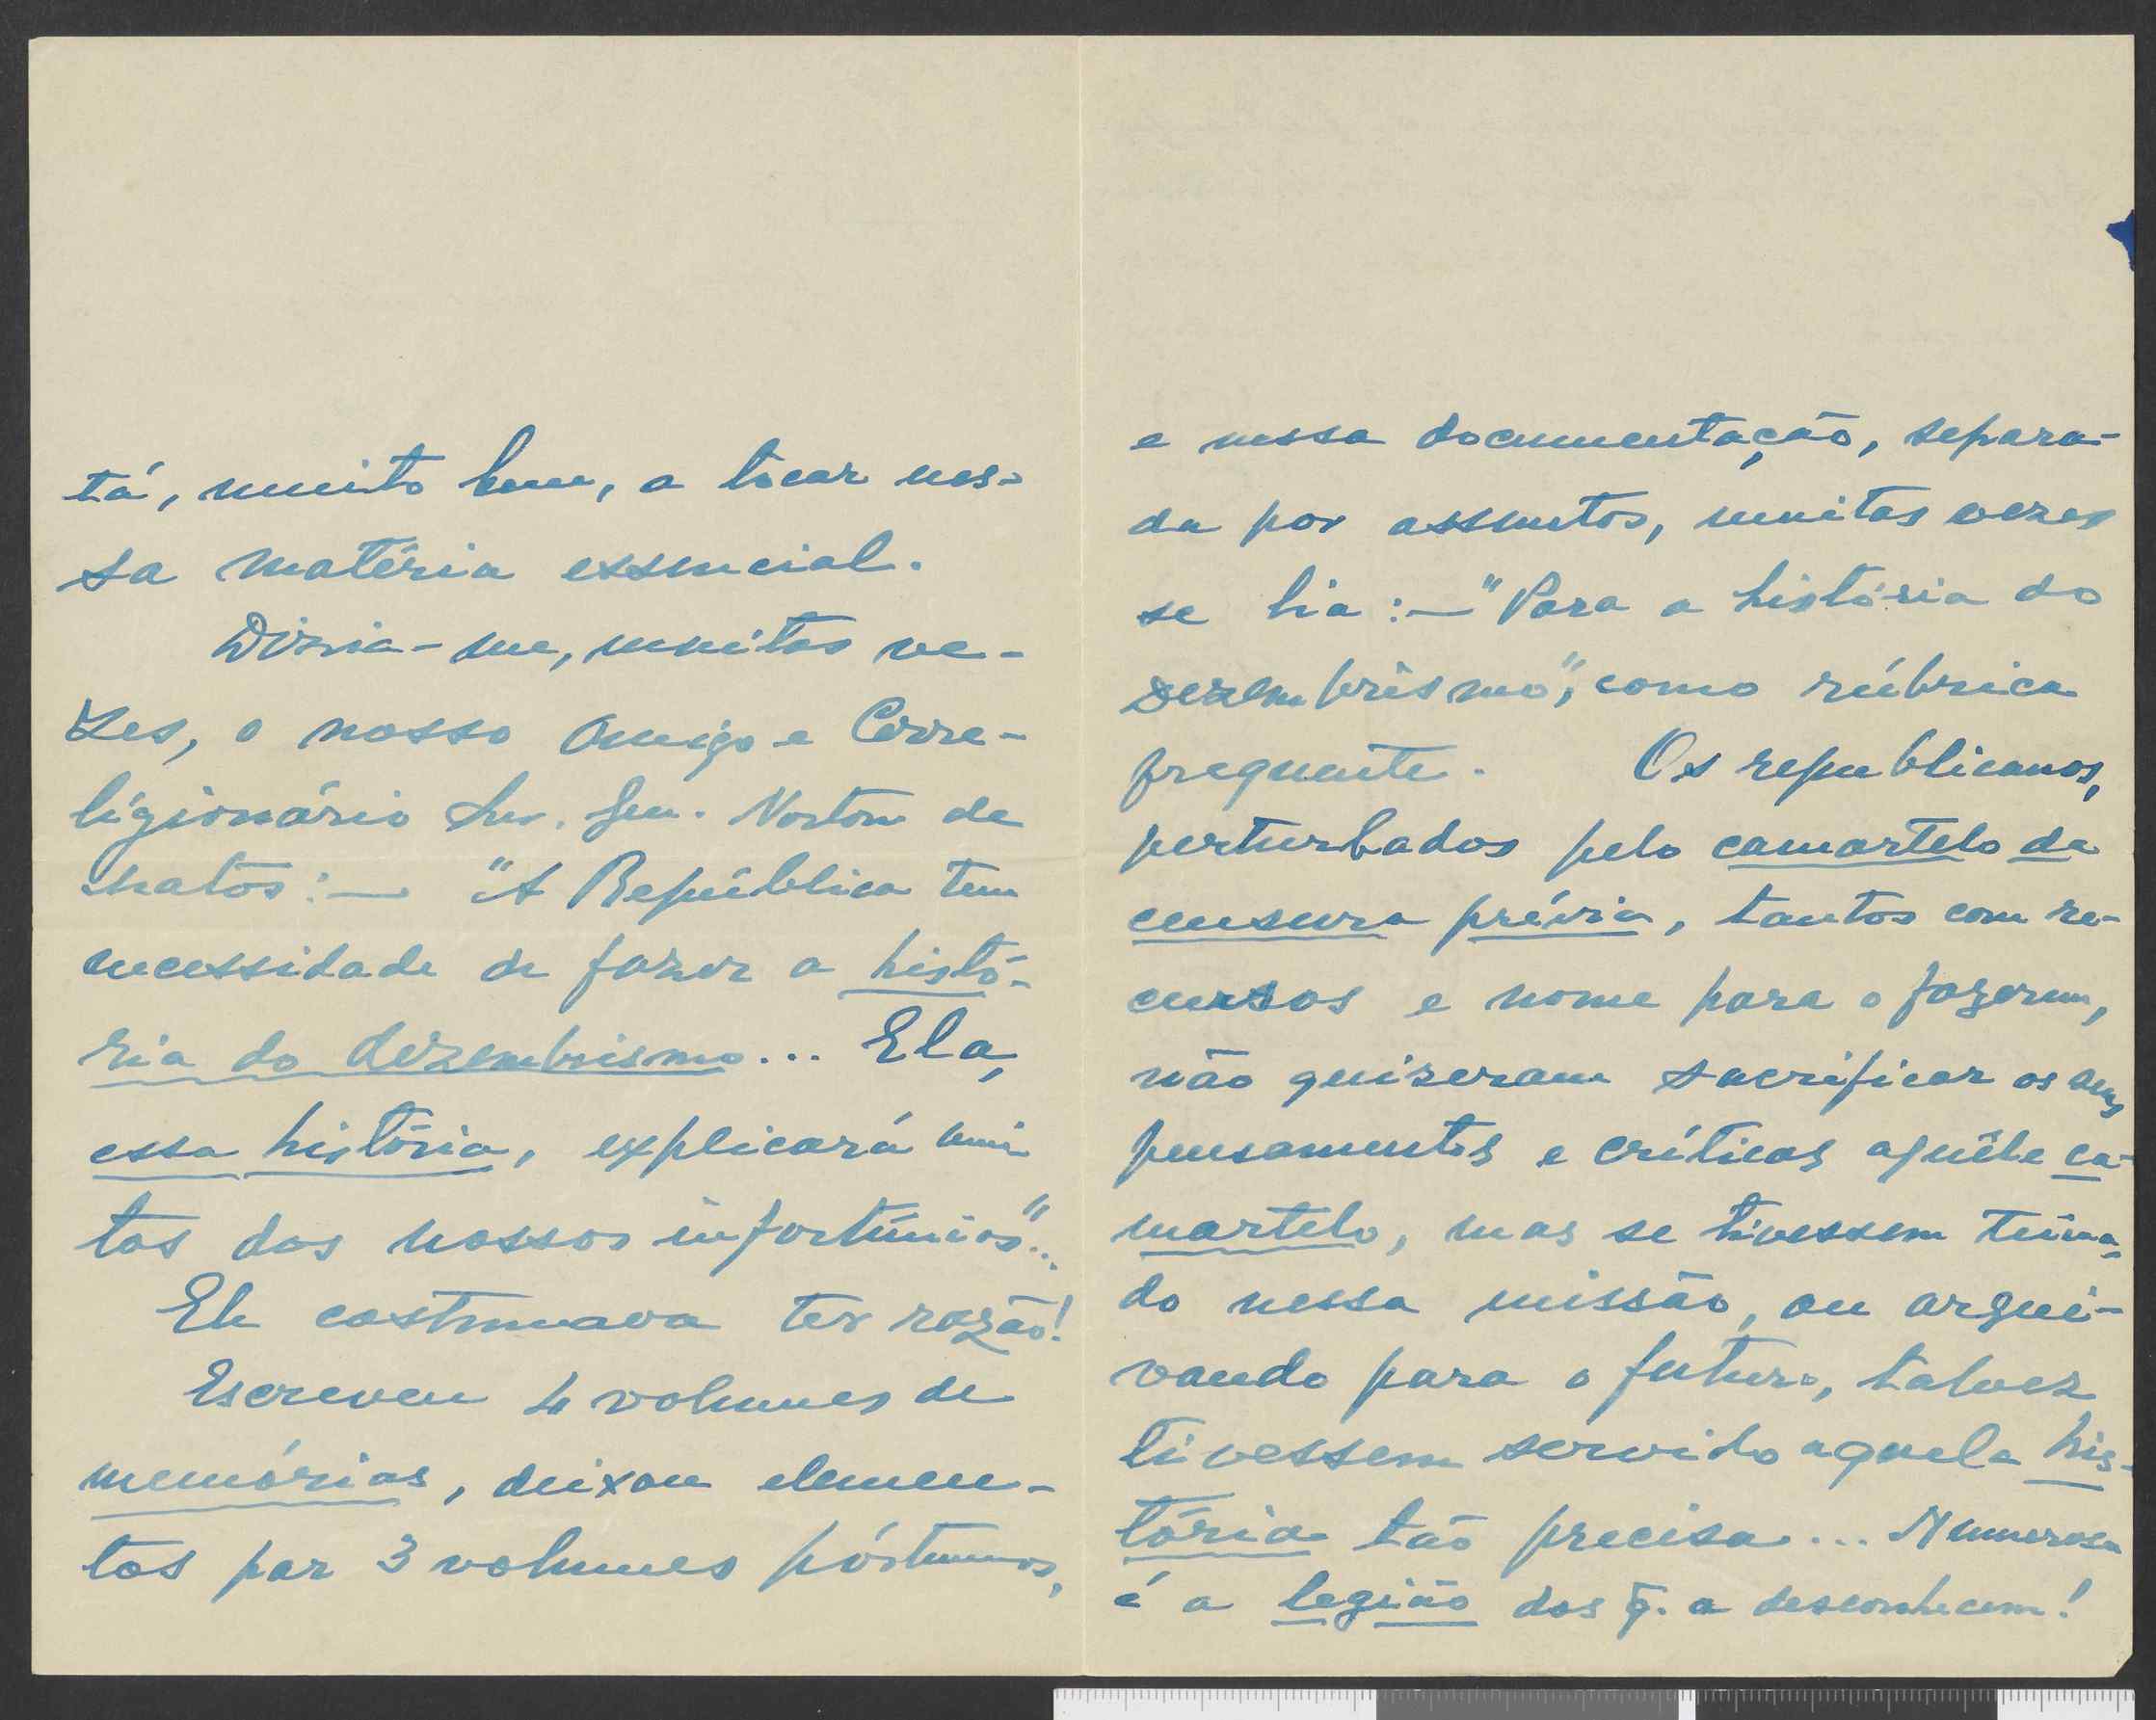 tá, muito bem, a tocar nes-
sa matéria essencial.
Dizia-me, muitas ve-
zes, o nosso Amigo e Corre-
ligionário Snr. Gen. Norton de
Matos:— "A República tem
necessidade de fazer a histó-
ria do dezembrismo... Ela,
essa história, explicará mui-
tos dos nossos infortúnios"..
Ele costumava ter razão!
Escreveu 4 volumes de
memórias, deixou elemen-
tos par 3 volumes póstumos,
e nessa documentação, separa-
da por assuntos, muitas vezes
se lia:— "Para a história do
Dezembrismo", como rúbrica
frequente. Os republicanos,
perturbados pelo camartelo da
censura prévia, tantos com re-
cursos e nome para o fazerem,
não quizeram sacrificar os seus
pensamentos e críticas aquêle ca-
martelo, mas se tivessem teima-
do nessa missão, ou arqui-
vando para o futuro, talvez
tivessem servido aquela his-
tória tão precisa... Numerosa
é a legião dos q̃. a desconhecem!